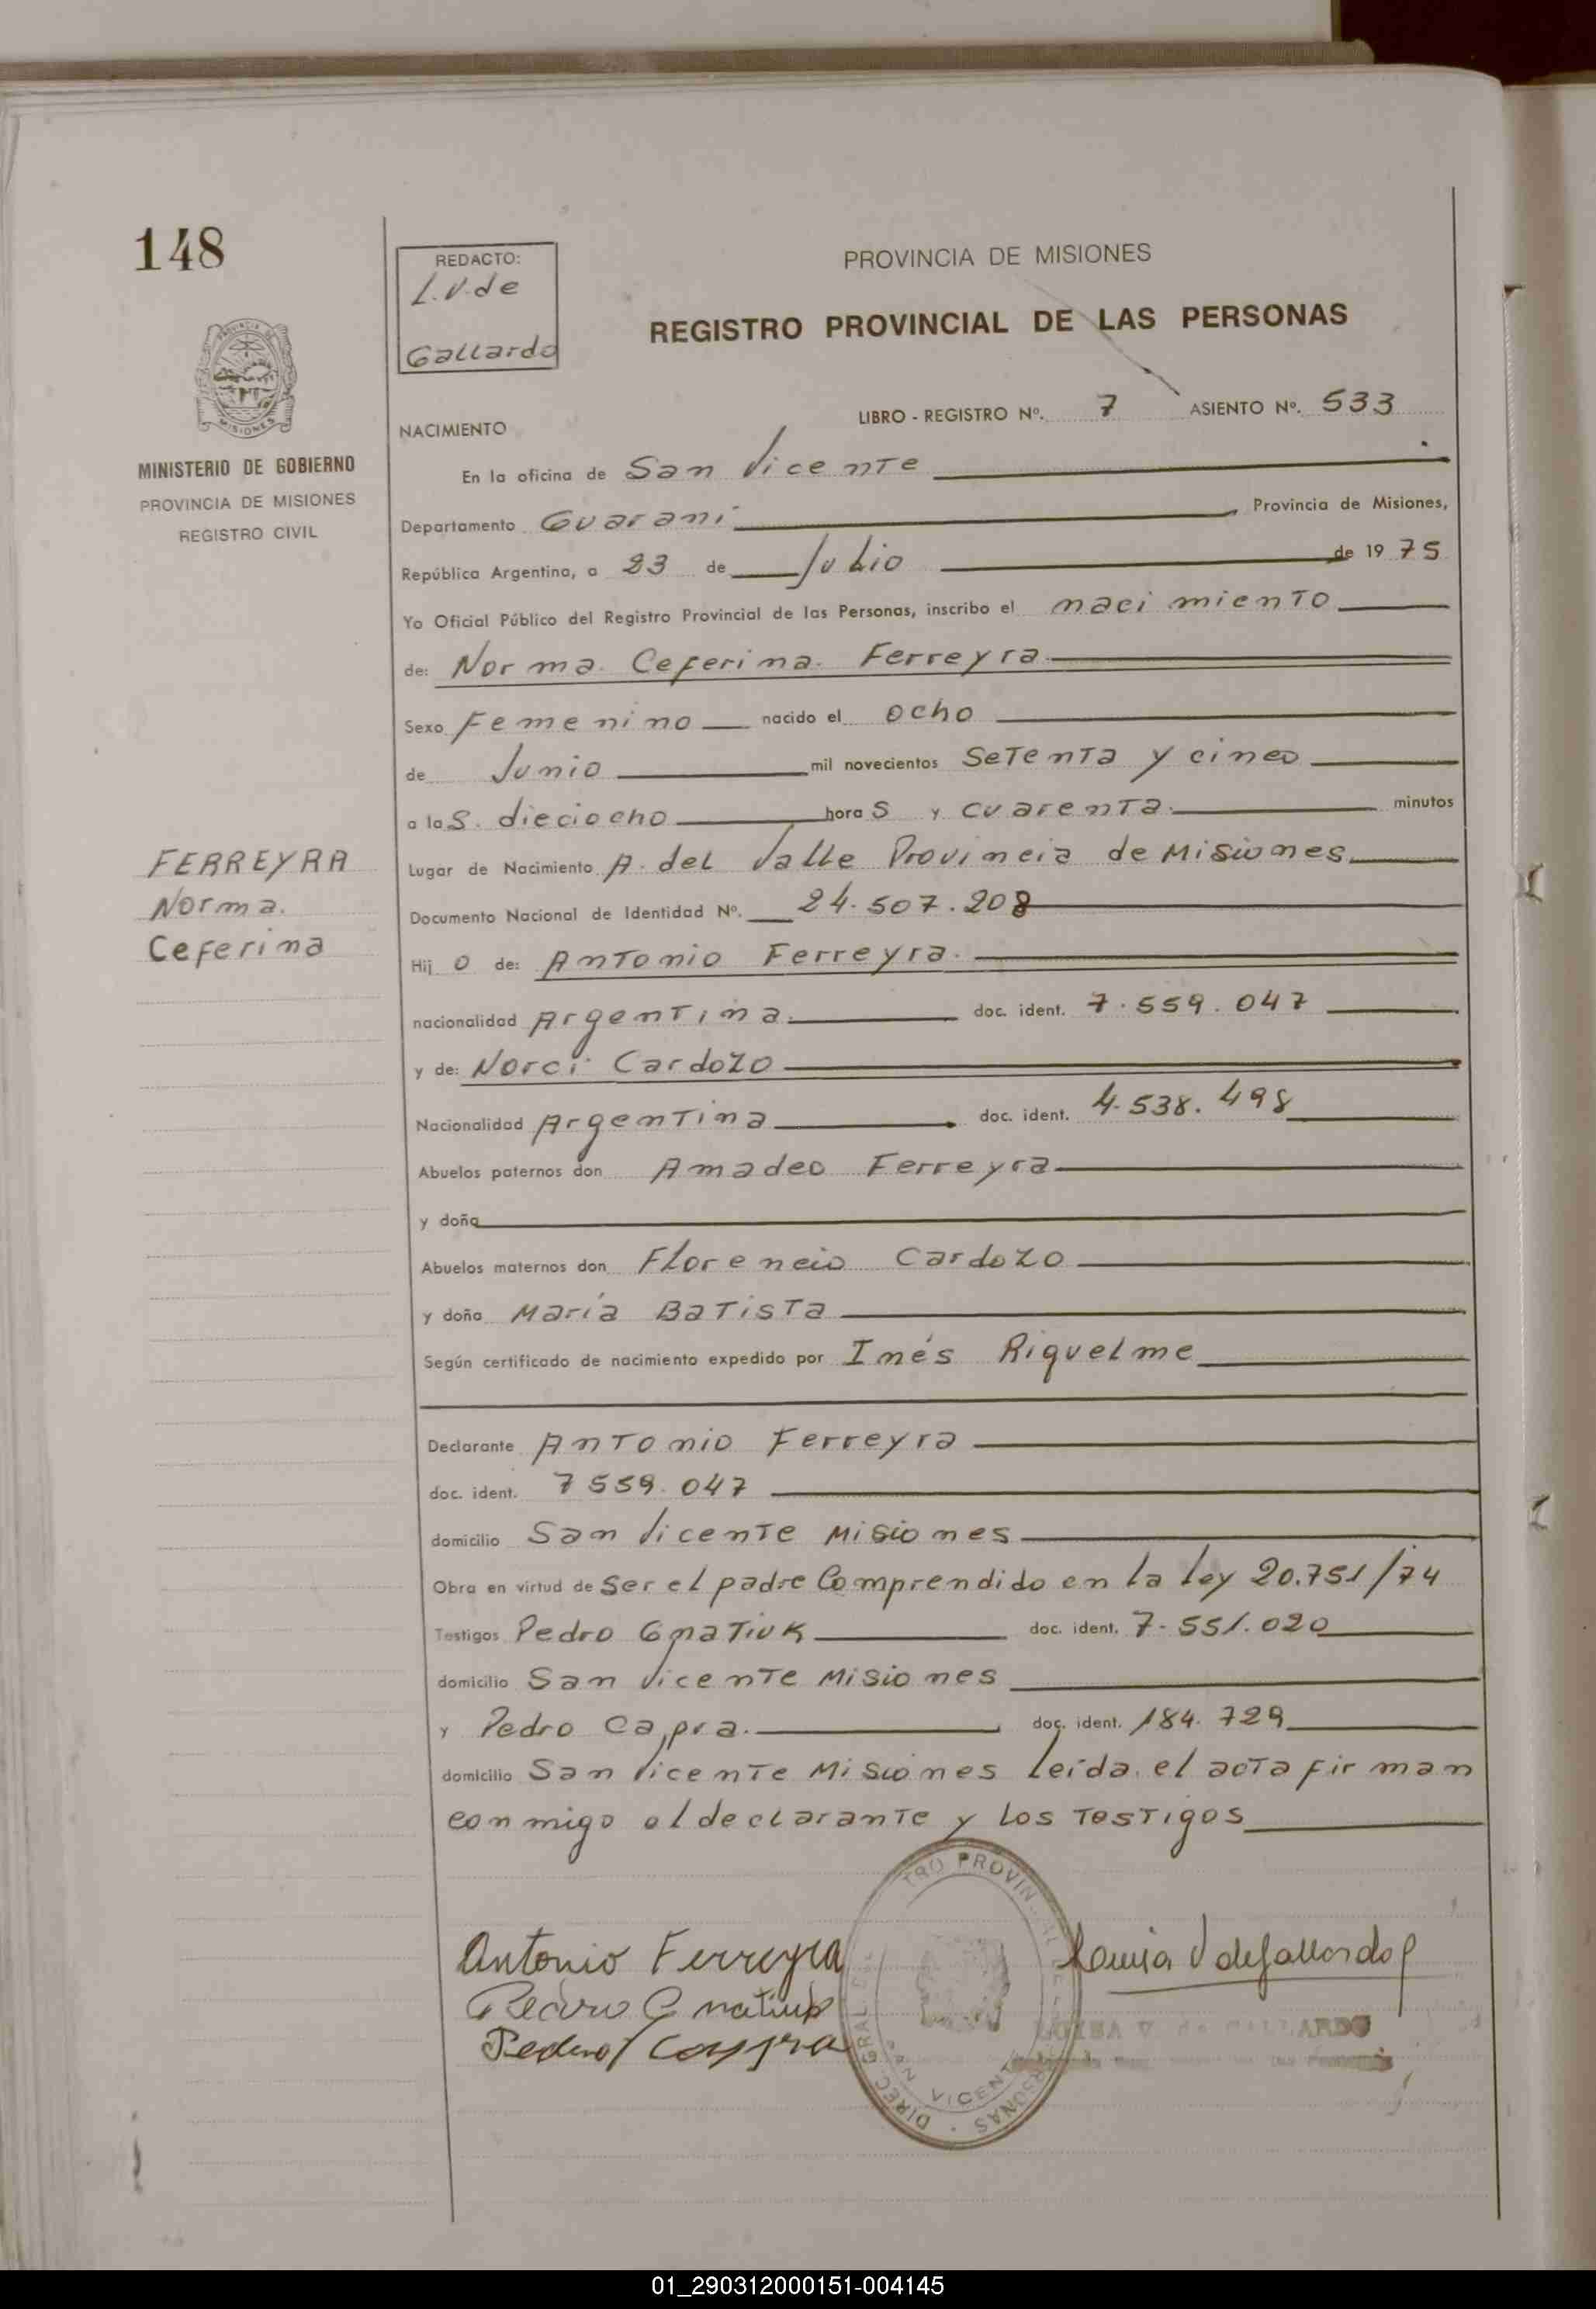 148
REDACTO:
L.V. de
Gallardo
PROVINCIA DE MISIONES
REGISTRO PROVINCIAL DE LAS PERSONAS
MINISTERIO DE GOBIERNO
PROVINCIA DE MISIONES
REGISTRO CIVIL
LIBRO - REGISTRO Nº. 7 ASIENTO Nº. 533
NACIMIENTO
En la oficina de San Vicente
Departamento Guaraní, Provincia de Misiones,
República Argentina, a 23 de Julio de 1975
Yo Oficial Público del Registro Provincial de las Personas, inscribo el nacimiento
de: Norma Ceferina Ferreyra
Sexo Femenino nacido el ocho
de Junio mil novecientos Setenta y cinco
a las dieciocho horas y cuarenta minutos
Lugar de Nacimiento A. del Valle Provincia de Misiones
Documento Nacional de Identidad Nº. 24.507.208
FERREYRA
Norma
Ceferina
Hijo de: Antonio Ferreyra
nacionalidad Argentina doc. ident. 7.559.047
y de: Norci Cardozo
Nacionalidad Argentina doc. ident. 4.538.498
Abuelos paternos don Amadeo Ferreyra
y doña
Abuelos maternos don Florencio Cardozo
y doña María Batista
Según certificado de nacimiento expedido por Inés Riquelme
Declarante Antonio Ferreyra
doc. ident. 7559.047
domicilio San Vicente Misiones
Obra en virtud de Ser el padre Comprendido en la ley 20.751/74
Testigos Pedro Gnatiuk doc. ident. 7.551.020
domicilio San Vicente Misiones
y Pedro Capra doc. ident. 184.729
domicilio San Vicente Misiones leída el acta firman
conmigo el declarante y los testigos
Antonio Ferreyra
Pedro Gnatiuk
Pedro Capra
Luisa V de Gallardo
LUISA V. de GALLARDO
DIREC. GRAL.
SAN VICENTE
01_290312000151-004145